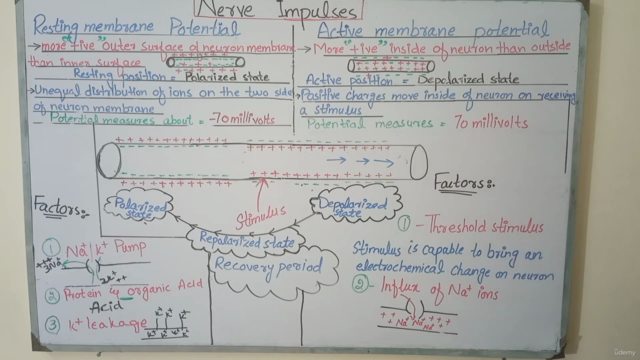 Nerve Impulses
Resting membrane Potential
→ more "+ive" outer surface of neuron membrane
than inner surface
Resting position = Polarized state
→ Unequal distribution of ions on the two side
of neuron membrane
- Potential measures about = -70 millivolts
Active membrane potential
→ More "+ive" inside of neuron than outside
Active position = Depolarized state
→ Positive charges move inside of neuron on receiving
a stimulus
Potential measures = 70 millivolts
Polarized
state
Stimulus
Depolarized
state
Repolarized state
Recovery period
Factors:-
① Na+/K+ Pump
3Na+
2K+
② Protein & organic Acid
Acid
③ K+ leakage
K+ K+ K+
K+ K+ K+ K+
Factors:-
① - Threshold stimulus
Stimulus is capable to bring an
electrochemical change on neuron
② - Influx of Na+ ions
Na+ Na+ Na+
Udemy